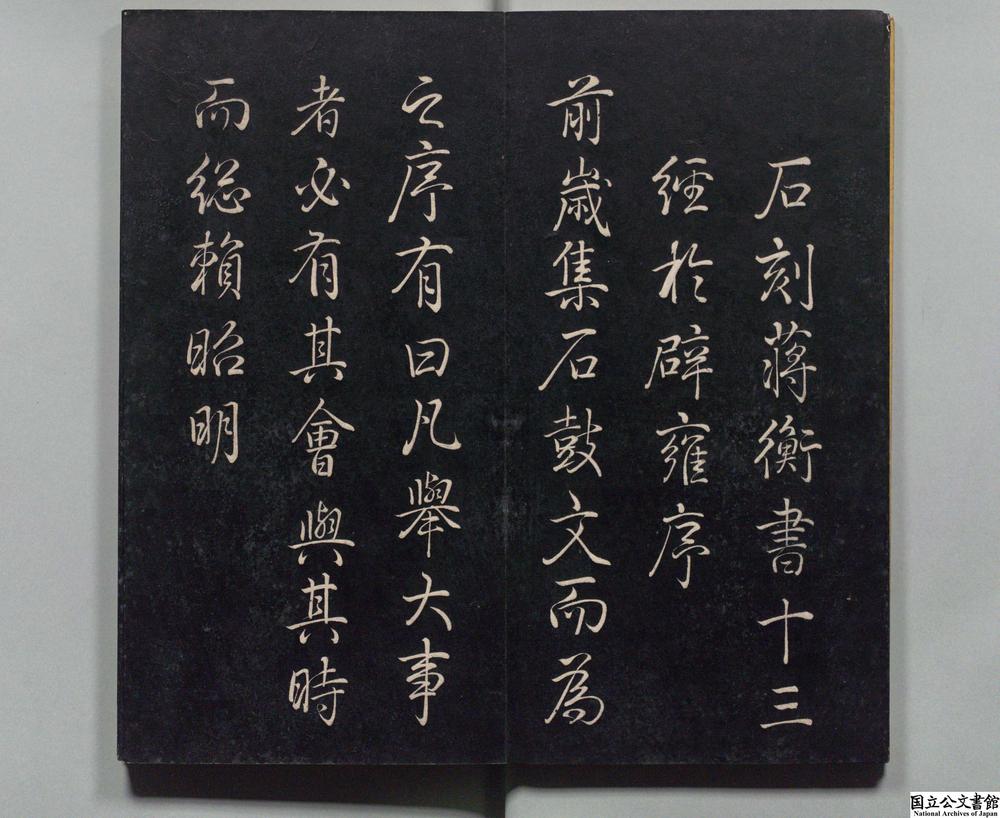 石刻蔣衡書十三
經於辟雍序
前歲集石鼓文而為
之序有曰凡舉大事
者必有其會與其時
而總賴昭明
国立公文書館
National Archives of Japan